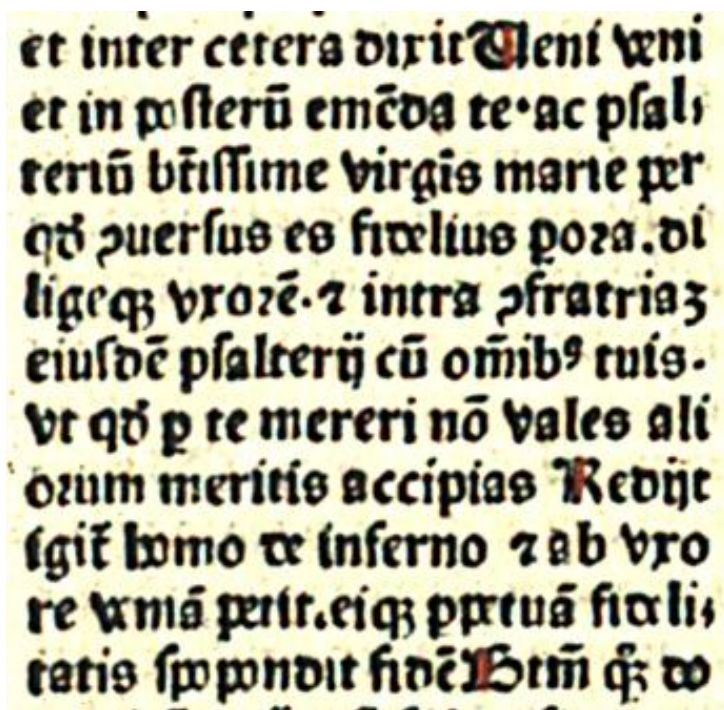 et inter cetera dixit Ueni veni
et in posterū emēda te· ac psal⸗
teriū btīssime virgīs marie per
qď ꝯuersus es fidelius ꝑora. di
ligeqꝫ vxorē. ⁊ intra ꝯfratriaꝫ
eiusdē psalterij cū om̄ibꝰ tuis.
vt qď ꝑ te mereri nō vales ali
orum meritis accipias Redijt
igit̄ homo de inferno ⁊ ab vxo
re veniā petit. eiqꝫ ꝑpetuā fideli⸗
tatis spopondit fidē Btm̄ qꝫ do